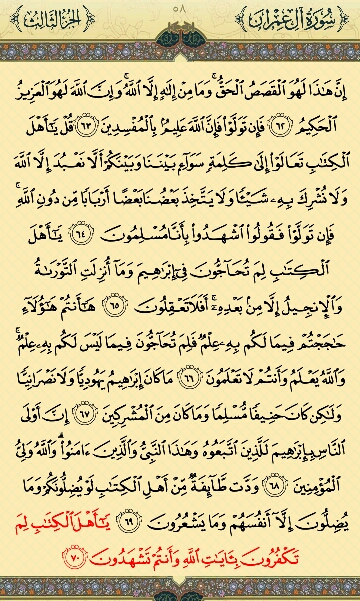 سُورَةُ آلِ عِمْرَانَ ٥٨ الجُزءُ الثَّالِث
إِنَّ هَٰذَا لَهُوَ ٱلْقَصَصُ ٱلْحَقُّ ۚ وَمَا مِنْ إِلَٰهٍ إِلَّا ٱللَّهُ ۚ وَإِنَّ ٱللَّهَ لَهُوَ ٱلْعَزِيزُ
ٱلْحَكِيمُ ﴿٦٢﴾ فَإِن تَوَلَّوْا۟ فَإِنَّ ٱللَّهَ عَلِيمٌۢ بِٱلْمُفْسِدِينَ ﴿٦٣﴾ قُلْ يَٰٓأَهْلَ
ٱلْكِتَٰبِ تَعَالَوْا۟ إِلَىٰ كَلِمَةٍ سَوَآءٍۭ بَيْنَنَا وَبَيْنَكُمْ أَلَّا نَعْبُدَ إِلَّا ٱللَّهَ
وَلَا نُشْرِكَ بِهِۦ شَيْـًٔا وَلَا يَتَّخِذَ بَعْضُنَا بَعْضًا أَرْبَابًا مِّن دُونِ ٱللَّهِ ۚ
فَإِن تَوَلَّوْا۟ فَقُولُوا۟ ٱشْهَدُوا۟ بِأَنَّا مُسْلِمُونَ ﴿٦٤﴾ يَٰٓأَهْلَ
ٱلْكِتَٰبِ لِمَ تُحَآجُّونَ فِىٓ إِبْرَٰهِيمَ وَمَآ أُنزِلَتِ ٱلتَّوْرَىٰةُ
وَٱلْإِنجِيلُ إِلَّا مِنۢ بَعْدِهِۦٓ ۚ أَفَلَا تَعْقِلُونَ ﴿٦٥﴾ هَٰٓأَنتُمْ هَٰٓؤُلَآءِ
حَٰجَجْتُمْ فِيمَا لَكُم بِهِۦ عِلْمٌ فَلِمَ تُحَآجُّونَ فِيمَا لَيْسَ لَكُم بِهِۦ عِلْمٌ ۚ
وَٱللَّهُ يَعْلَمُ وَأَنتُمْ لَا تَعْلَمُونَ ﴿٦٦﴾ مَا كَانَ إِبْرَٰهِيمُ يَهُودِيًّا وَلَا نَصْرَانِيًّا
وَلَٰكِن كَانَ حَنِيفًا مُّسْلِمًا وَمَا كَانَ مِنَ ٱلْمُشْرِكِينَ ﴿٦٧﴾ إِنَّ أَوْلَى
ٱلنَّاسِ بِإِبْرَٰهِيمَ لَلَّذِينَ ٱتَّبَعُوهُ وَهَٰذَا ٱلنَّبِىُّ وَٱلَّذِينَ ءَامَنُوا۟ ۗ وَٱللَّهُ وَلِىُّ
ٱلْمُؤْمِنِينَ ﴿٦٨﴾ وَدَّت طَّآئِفَةٌ مِّنْ أَهْلِ ٱلْكِتَٰبِ لَوْ يُضِلُّونَكُمْ وَمَا
يُضِلُّونَ إِلَّآ أَنفُسَهُمْ وَمَا يَشْعُرُونَ ﴿٦٩﴾ يَٰٓأَهْلَ ٱلْكِتَٰبِ لِمَ
تَكْفُرُونَ بِـَٔايَٰتِ ٱللَّهِ وَأَنتُمْ تَشْهَدُونَ ﴿٧٠﴾